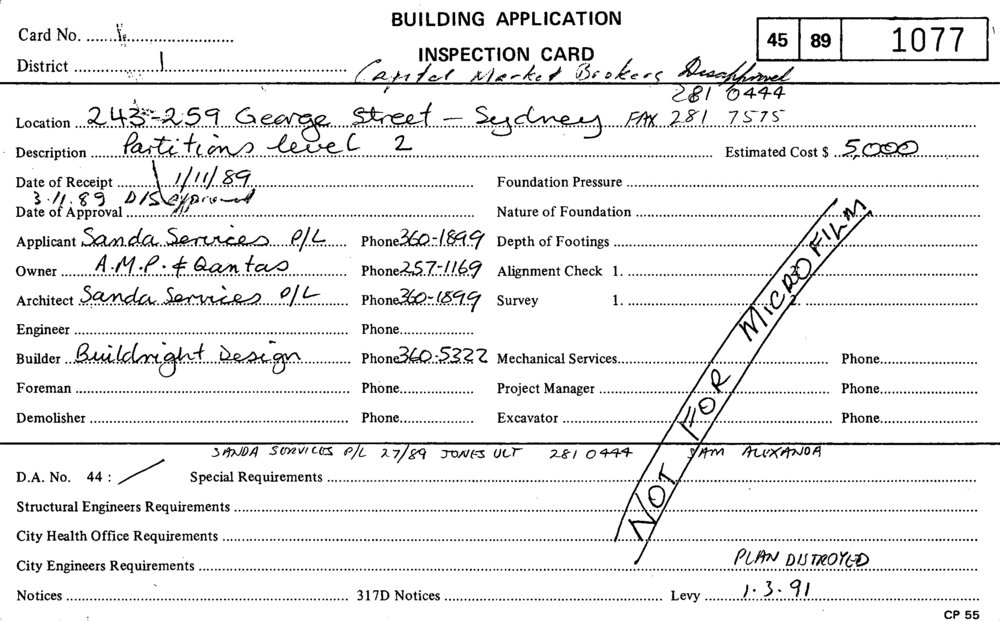 BUILDING APPLICATION
INSPECTION CARD
Card No.
District 1
45 89 1077
Capital Market Brokers Disapproved
281 0444
Location 243-259 George Street - Sydney FAX 281 7575
Description Partitions level 2 Estimated Cost $ 5,000
Date of Receipt 1/11/89 Foundation Pressure
3.11.89 DISapproved
Date of Approval Nature of Foundation
Applicant Sanda Services P/L Phone 360-1899 Depth of Footings
Owner A.M.P. & Qantas Phone 257-1169 Alignment Check 1.
Architect Sanda Services P/L Phone 360-1899 Survey 1. 2.
Engineer Phone
Builder Buildright Design Phone 360-5322 Mechanical Services Phone
Foreman Phone Project Manager Phone
Demolisher Phone Excavator Phone
NOT FOR MICROFILM
SANDA SERVICES P/L 27/89 JONES ULT 281 0444 SAM ALEXANDA
D.A. No. 44 : / Special Requirements
Structural Engineers Requirements
City Health Office Requirements
City Engineers Requirements PLAN DISTROYED
Notices 317D Notices Levy 1.3.91
CP 55